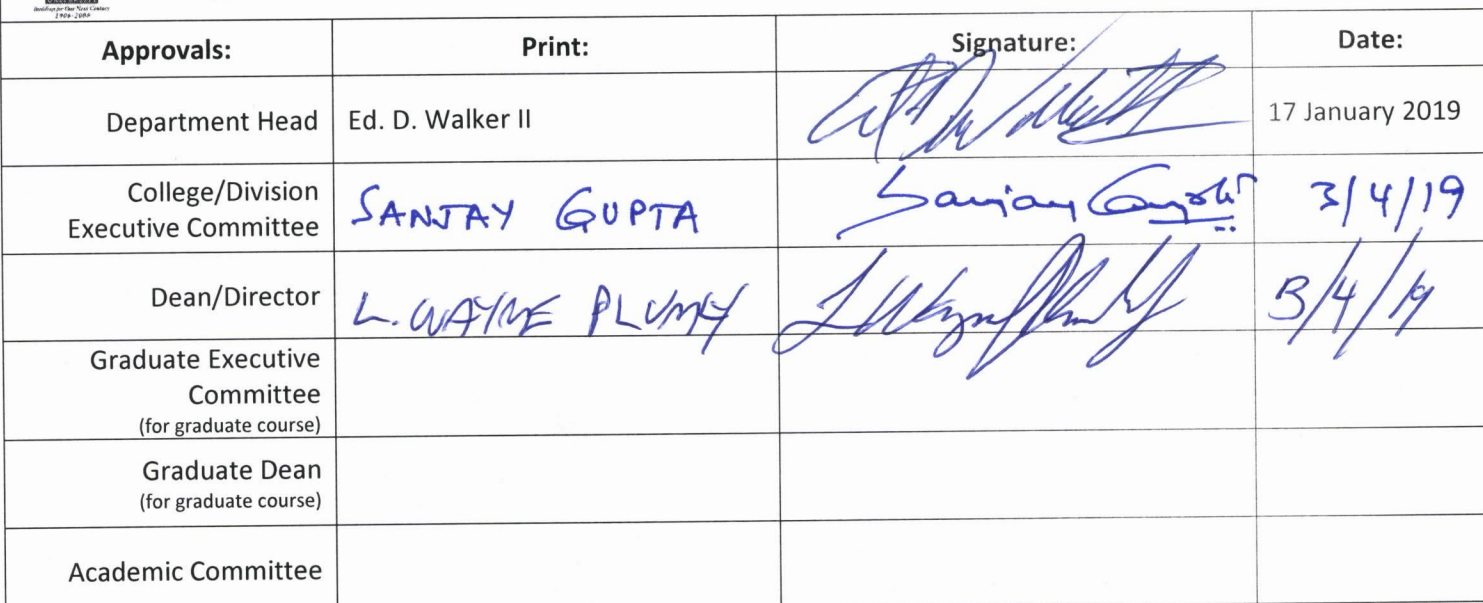 Buildings for Our Next Century
1906-2006
Approvals: Print: Signature: Date:
Department Head Ed. D. Walker II 17 January 2019
College/Division
Executive Committee SANJAY GUPTA Sanjay Gupta 3/4/19
Dean/Director L. WAYNE PLUMLY L Wayne Plumly 3/4/19
Graduate Executive
Committee
(for graduate course)
Graduate Dean
(for graduate course)
Academic Committee